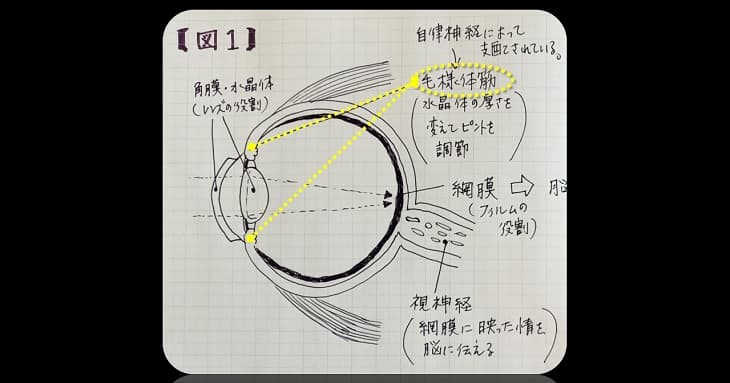 【図1】
自律神経によって
支配されている。
毛様体筋
(水晶体の厚さを
変えてピントを
調節)
角膜・水晶体
(レンズの役割)
網膜 ⇨ 脳
(フィルムの
役割)
視神経
(網膜に映った情を
脳に伝える)